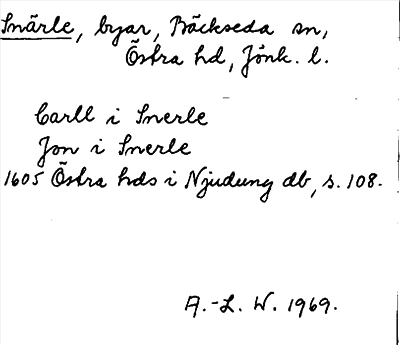 Snärle, byar, Bäckseda sn,
Östra hd, Jönk. l.
Carll i Snerle
Jon i Snerle
1605 Östra hds i Njudung db, s. 108.
A.-L. W. 1969.